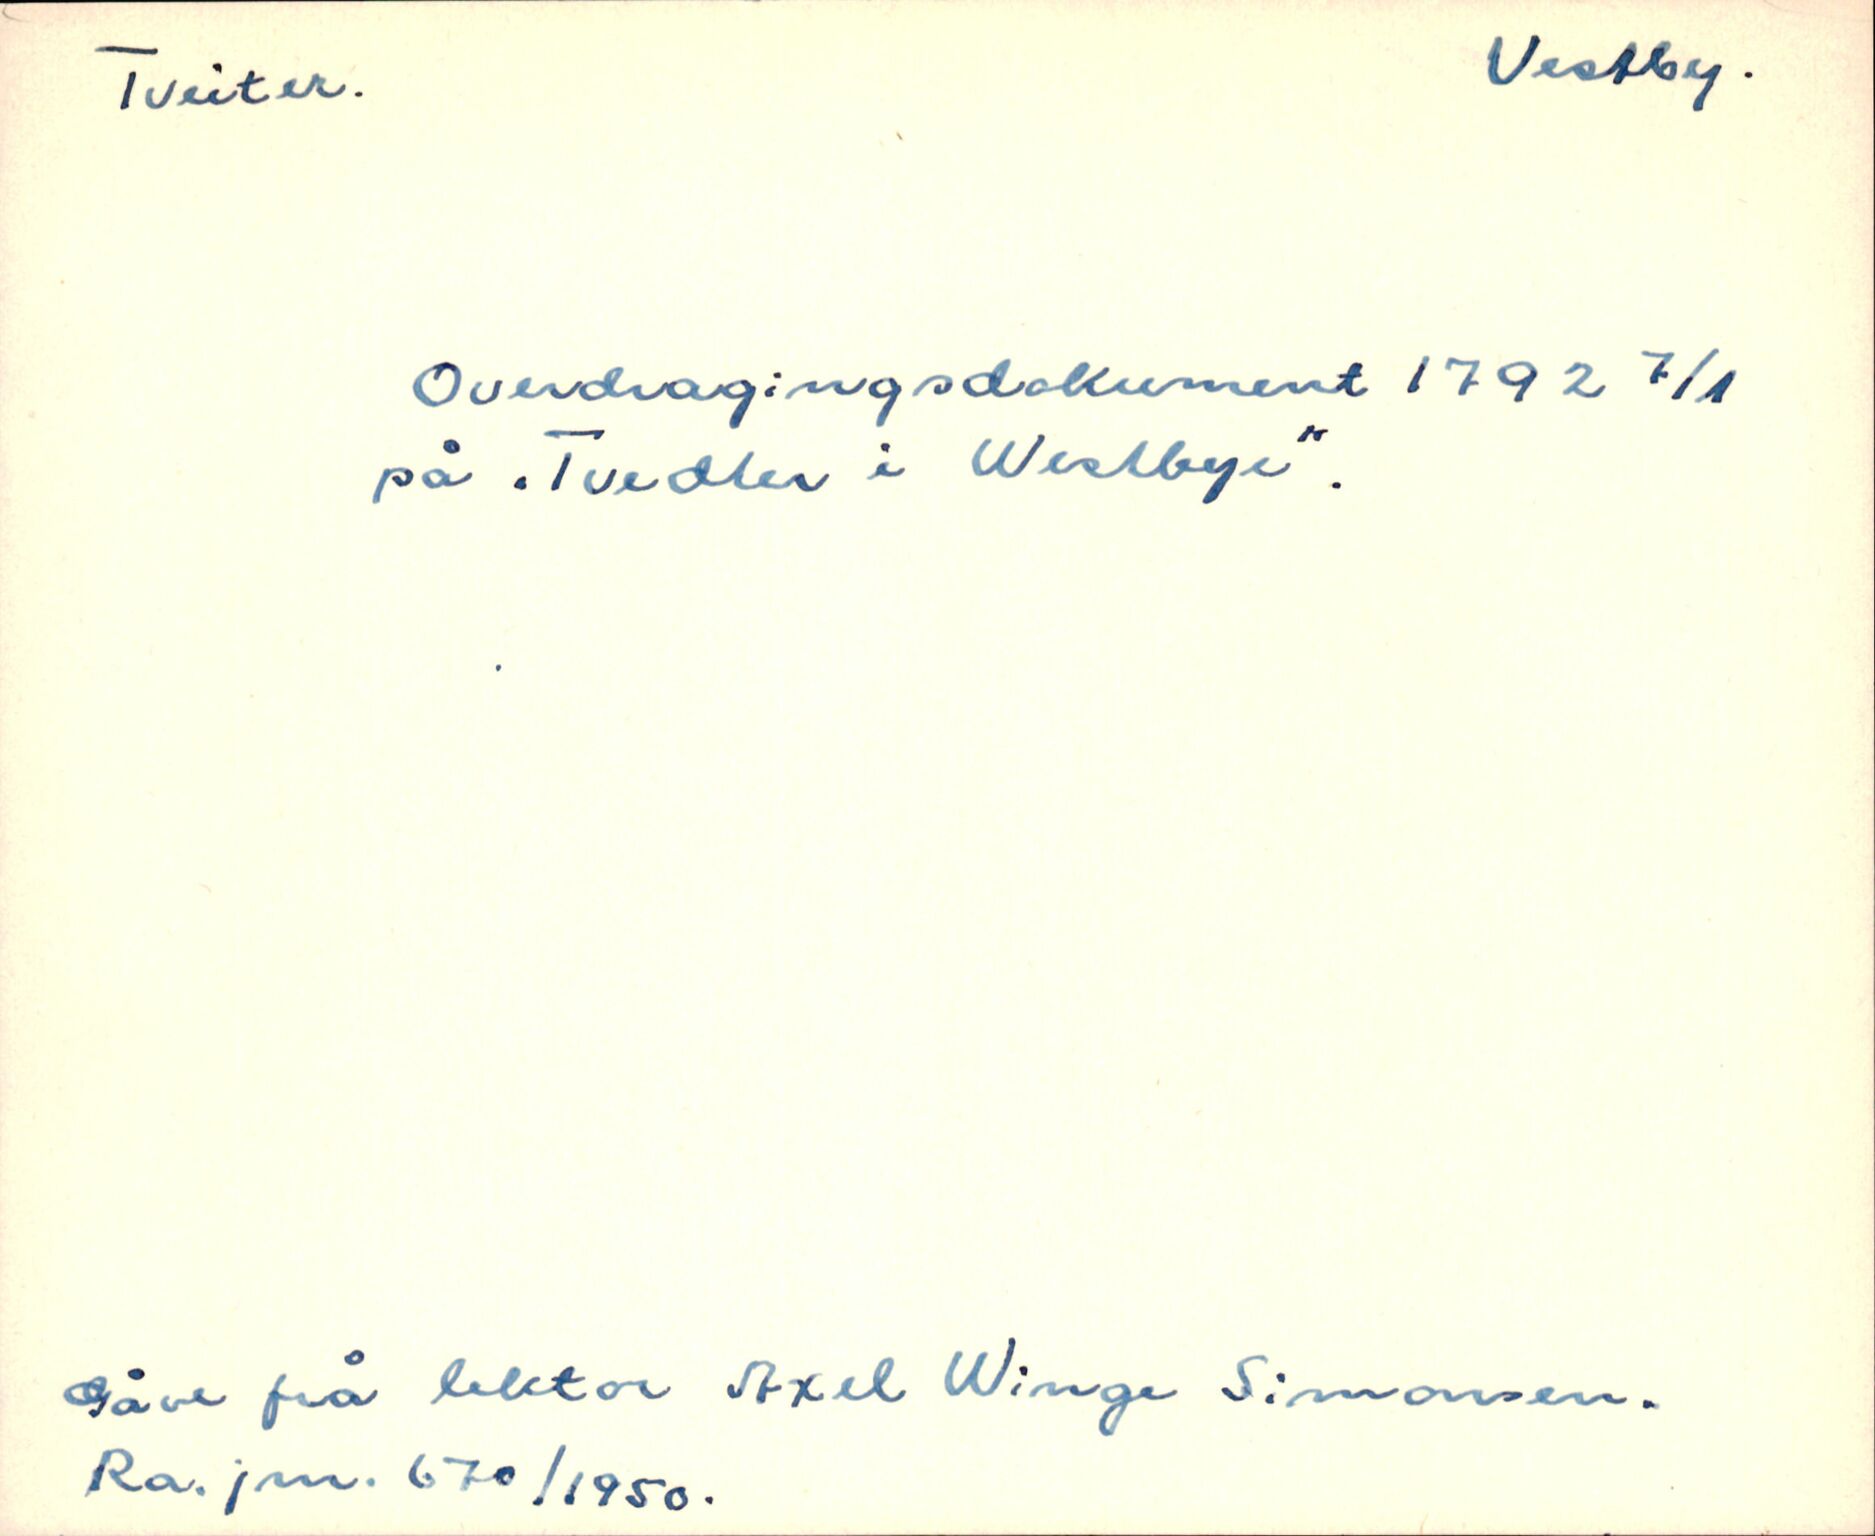 Tveiter.
Vestby.
Overdragingsdokument 1792 7/1
på „Tvedter i Westbye“.
Gåve frå lektor Axel Winge Simonsen.
Ra. jnr. 670/1950.